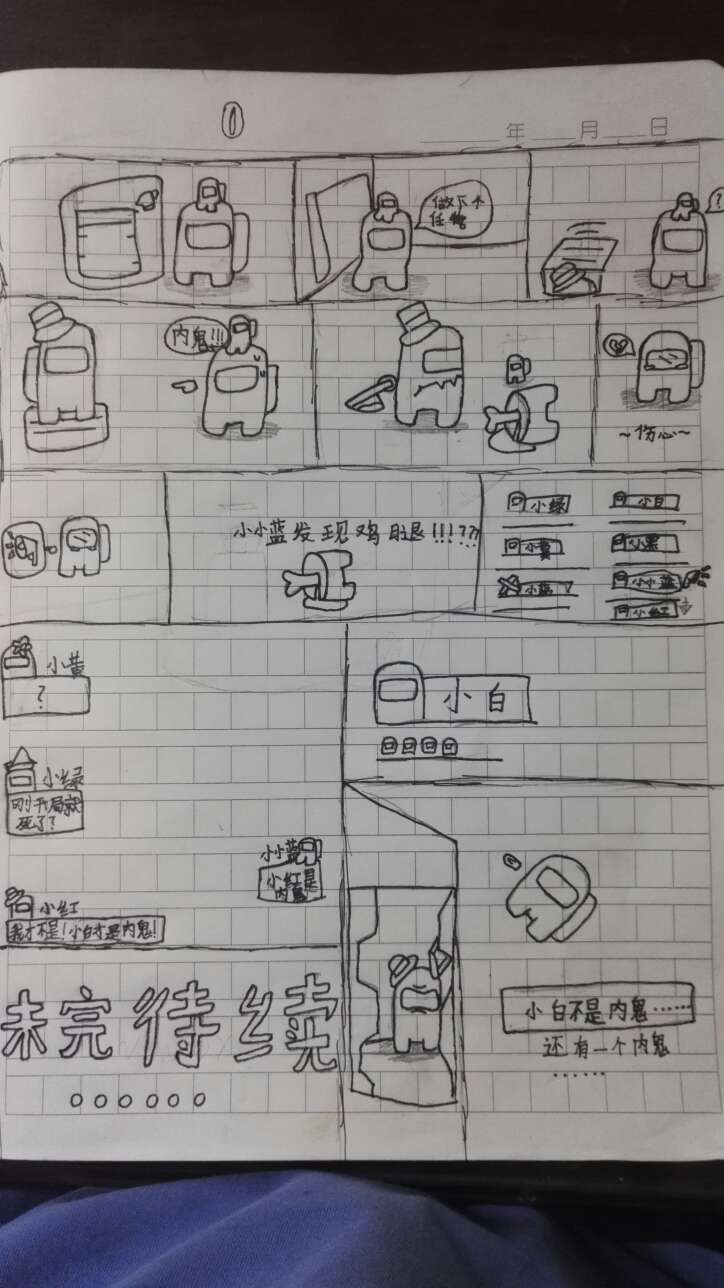 ①
年 月 日
做下个
任务
?
内鬼!!!
~伤心~
小小蓝发现鸡腿!!!??
小绿
小白
小黄
小黑
小蓝
小小蓝
小红
小黄
?
小绿
刚开局就
死了?
小小蓝
小红是
内鬼
小红
我才不是!小白才是内鬼!
小白
小白不是内鬼……
还有一个内鬼
……
未完待续
。。。。。。